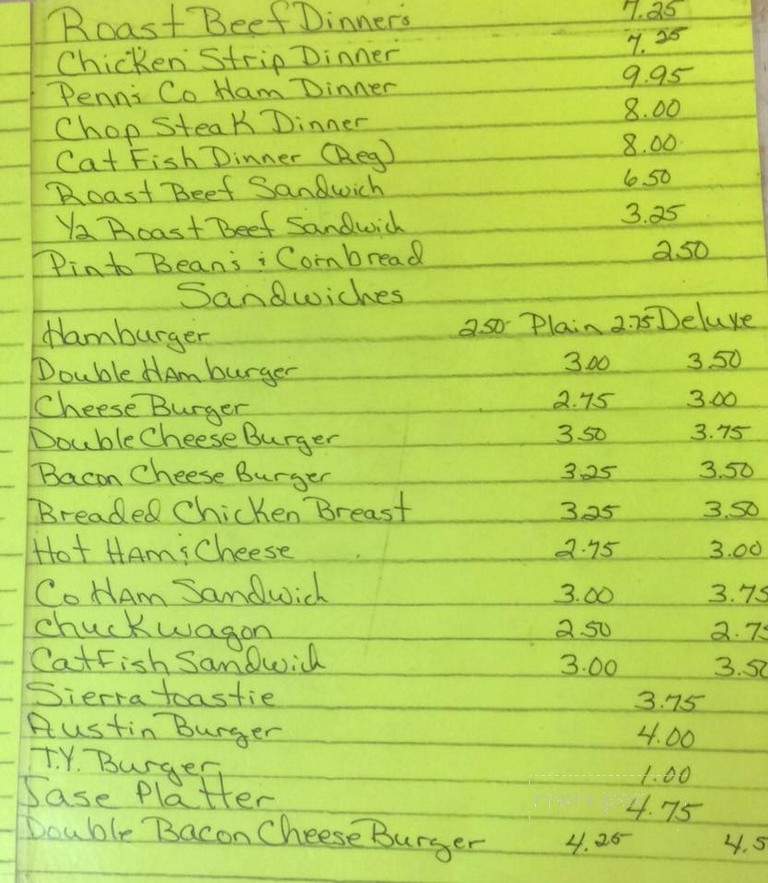 Roast Beef Dinners 7.25
Chicken Strip Dinner 7.25
Penn's Co Ham Dinner 9.95
Chop Steak Dinner 8.00
Cat Fish Dinner (Reg) 8.00
Roast Beef Sandwich 6.50
1/2 Roast Beef Sandwich 3.25
Pinto Beans & Cornbread 2.50
Sandwiches
Hamburger 2.50 Plain 2.75 Deluxe
Double Hamburger 3.00 3.50
Cheese Burger 2.75 3.00
Double Cheese Burger 3.50 3.75
Bacon Cheese Burger 3.25 3.50
Breaded Chicken Breast 3.25 3.50
Hot Ham & Cheese 2.75 3.00
Co Ham Sandwich 3.00 3.75
Chuckwagon 2.50 2.75
CatFish Sandwich 3.00 3.50
Sierra toastie 3.75
Austin Burger 4.00
T.Y. Burger 1.00
Jase Platter 4.75
Double Bacon Cheese Burger 4.25 4.5